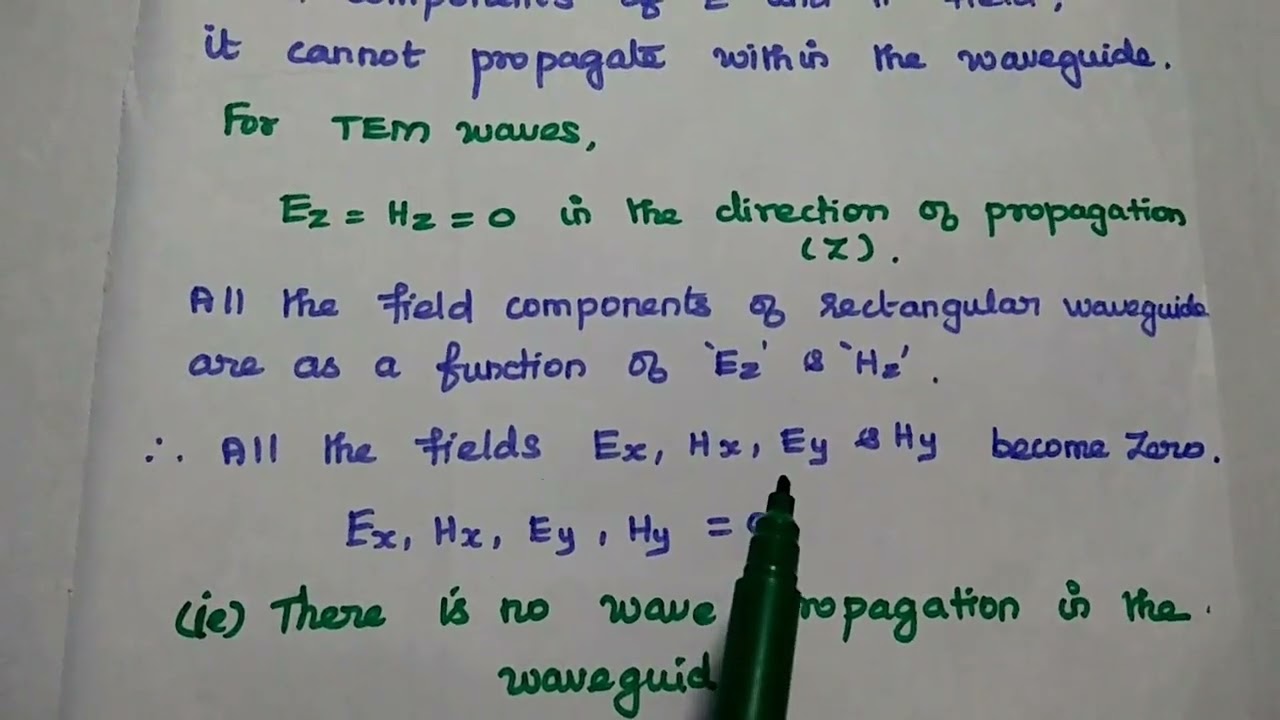 components of E and H field,
it cannot propagate within the waveguide.
For TEM waves,
Ez = Hz = 0 in the direction of propagation
(z).
All the field components of rectangular waveguide
are as a function of 'Ez' & 'Hz'.
∴ All the fields Ex, Hx, Ey & Hy become zero.
Ex, Hx, Ey, Hy =
(ie) There is no wave ropagation in the
waveguid